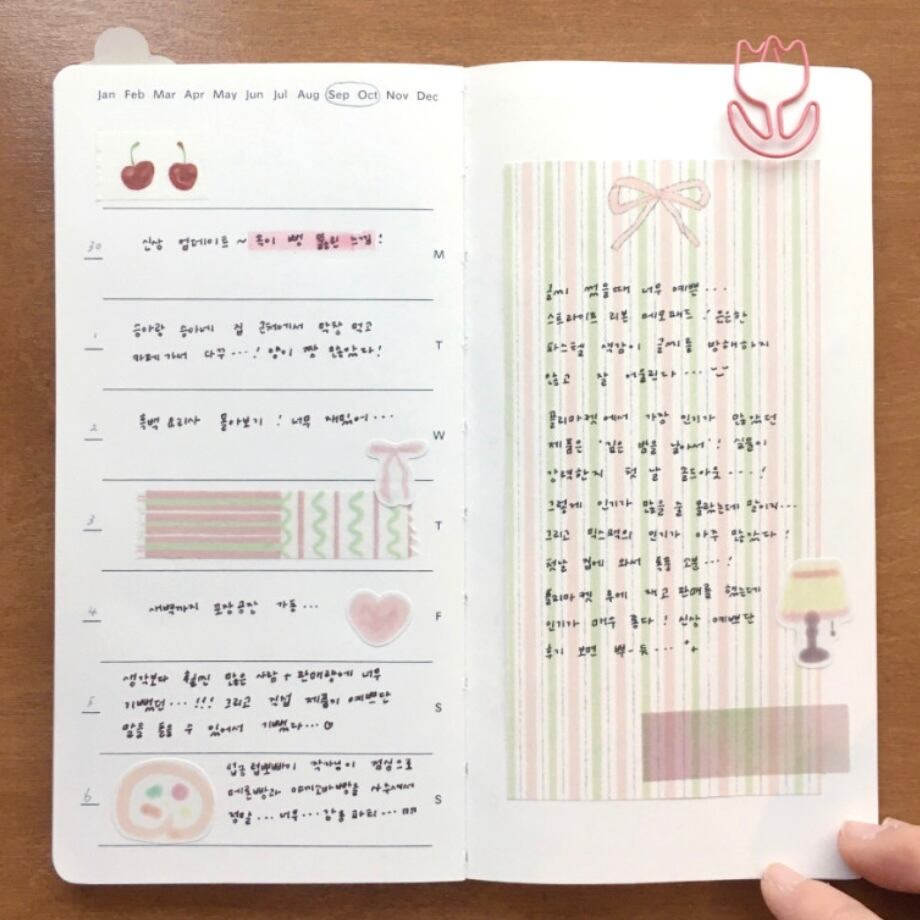 Jan Feb Mar Apr May Jun Jul Aug Sep Oct Nov Dec
30
신상 업데이트 ~ 속이 뻥 뚫린 느낌!
M
1
승아랑 승아네 집 근처에서 막창 먹고
카페 가서 다꾸...! 양이 짱 많았다!
T
2
흑백 요리사 몰아보기! 너무 재밌어...
W
3
T
4
새벽까지 포장공장 가동...
F
5
생각보다 훨씬 많은 사람 + 판매량에 너무
기뻤던...!!! 그리고 직접 제품이 예쁘단
말을 들을 수 있어서 기뻤다...
S
6
작가님이 점심으로
메론빵과 사주셔서
정말... 너무... 감동 파티...
S
글씨 썼을때 너무 예쁜...
스트라이프 리본 메모패드! 은은한
파스텔 색감이 글씨를 방해하지
않고 잘 어울린다...
플리마켓에서 가장 인기가 많았던
제품은 '깊은 밤을 날아서'! 실물이
강력한지 첫 날 솔드아웃....!
그렇게 인기가 많을 줄 몰랐는데 말이지...
그리고 믹스팩의 인기가 아주 많았다!
첫날 집에 와서 폭풍 소분...!
플리마켓 후에 재고 판매를 했는데
인기가 매우 좋다! 신상 예쁘단
후기 보면 뿌-듯...